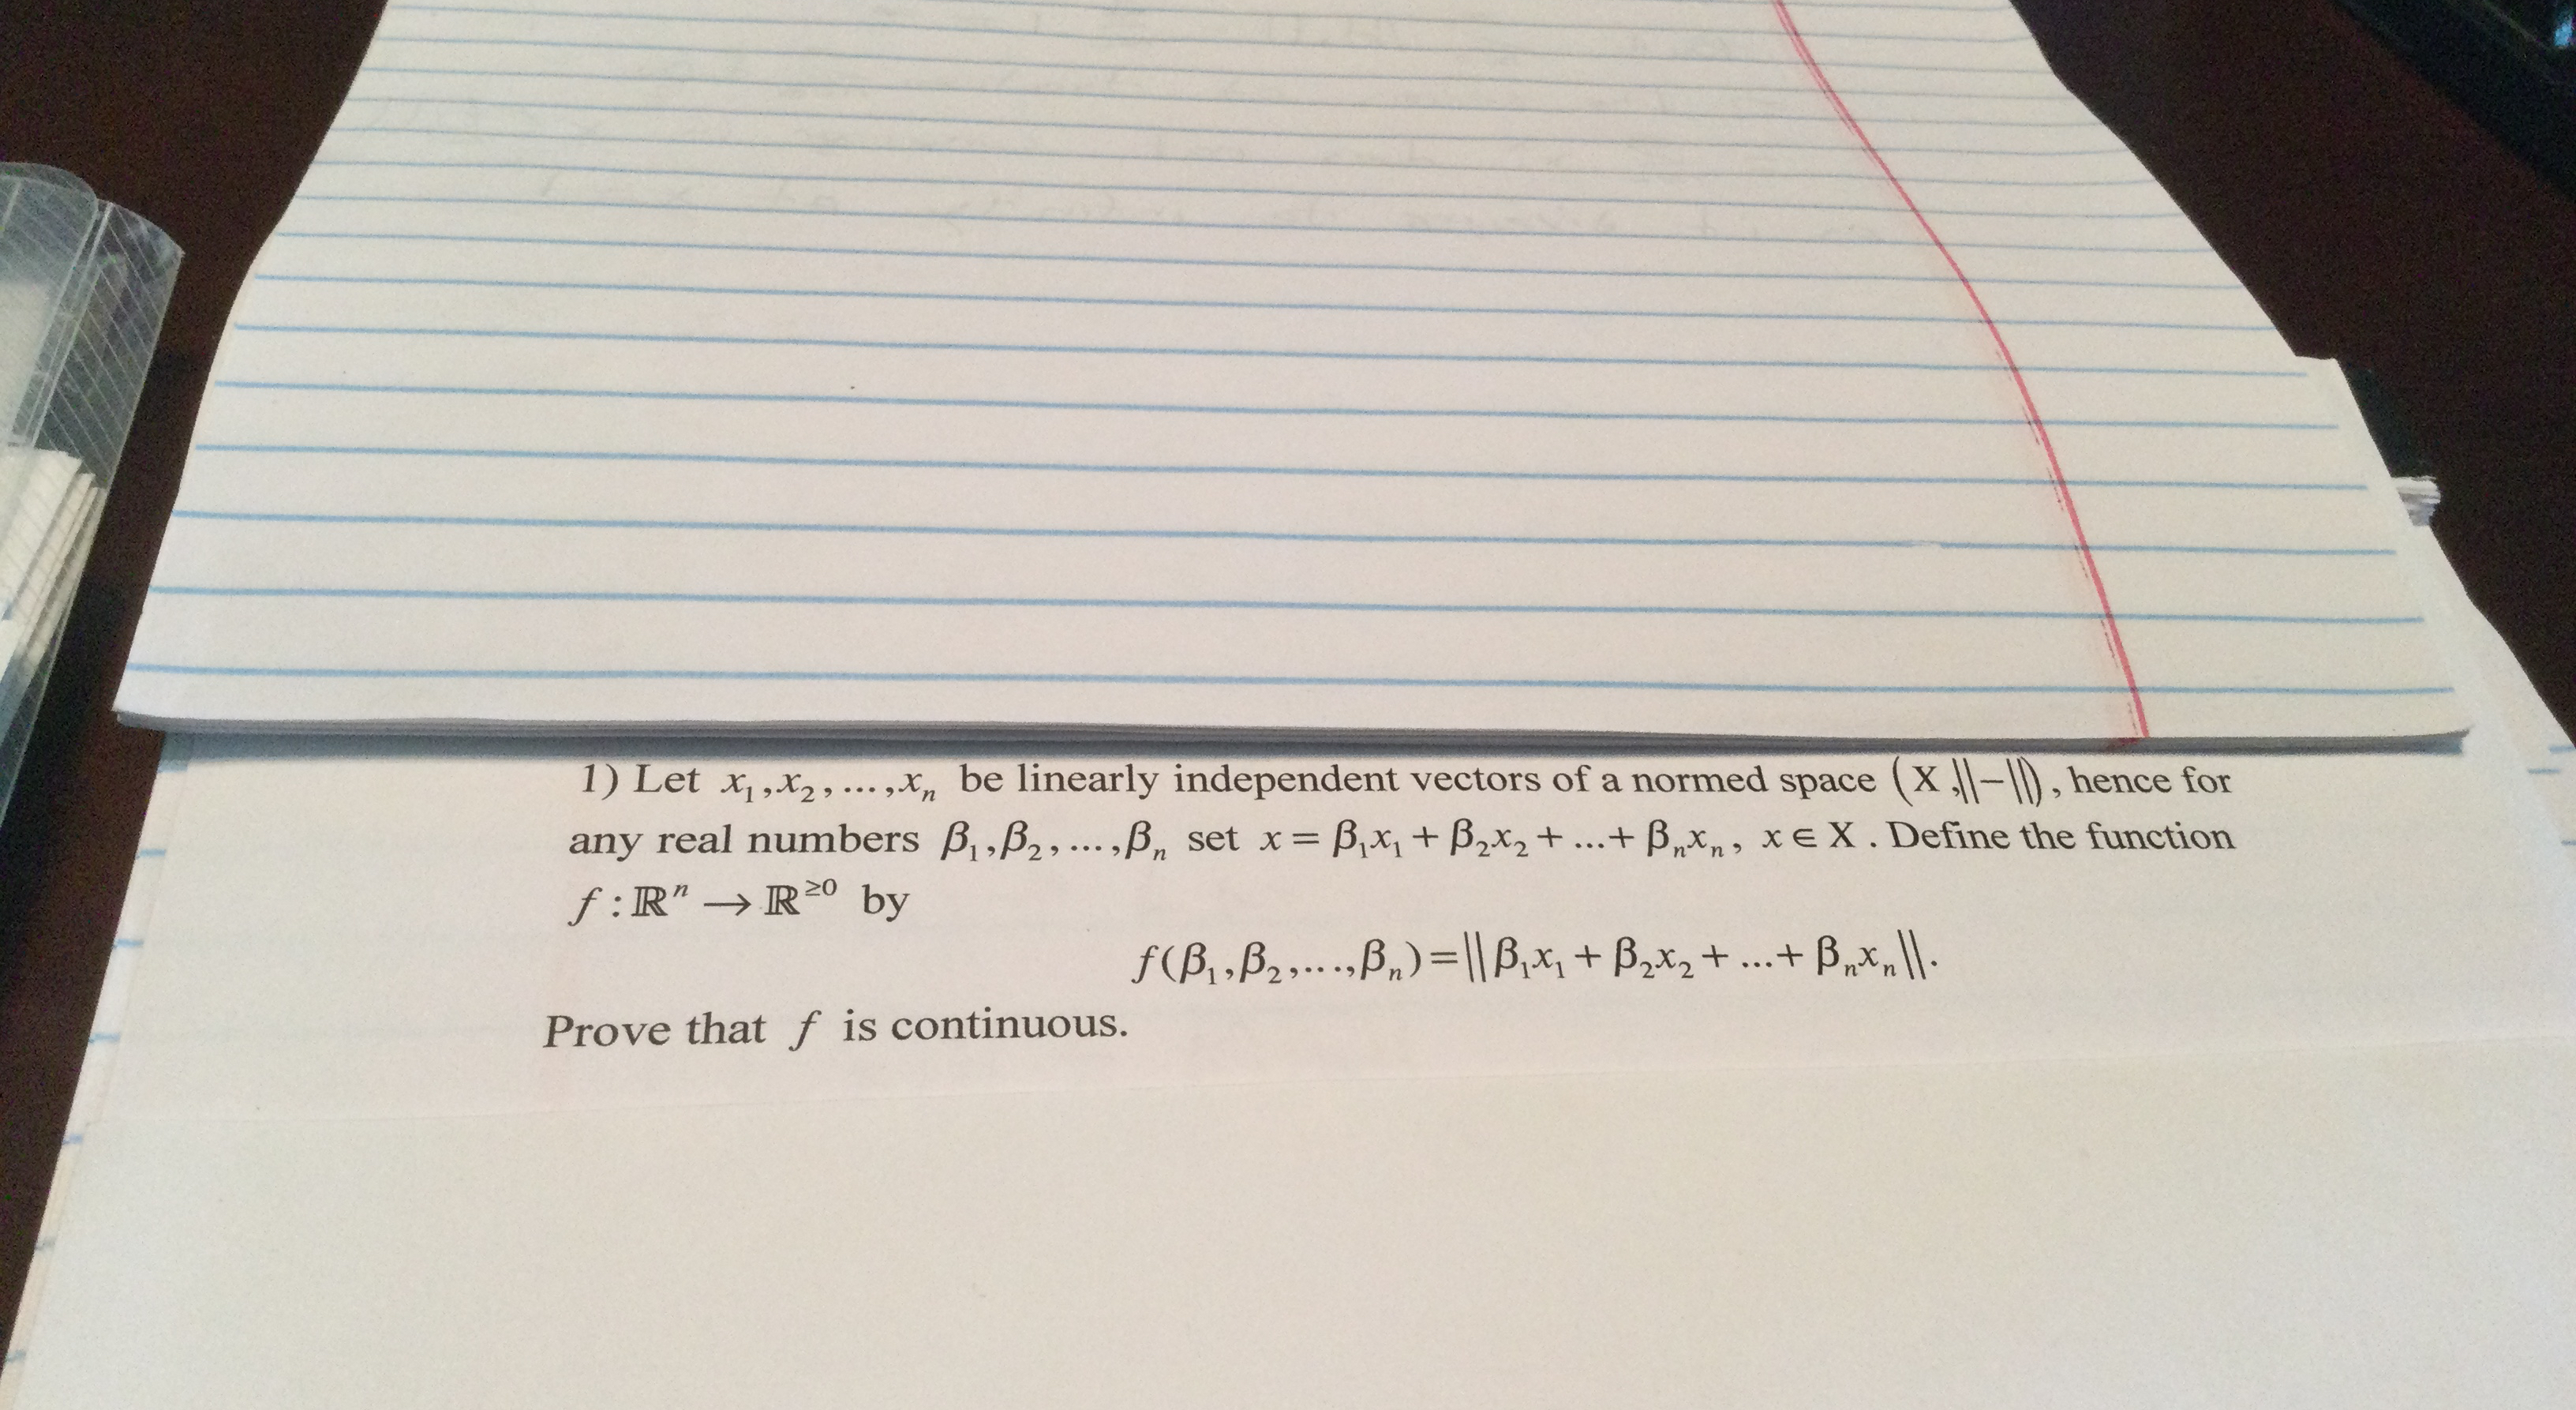 1) Let x₁,x₂,...,xₙ be linearly independent vectors of a normed space (X,‖−‖), hence for
any real numbers β₁,β₂,...,βₙ set x = β₁x₁ + β₂x₂ + ...+ βₙxₙ, x ∈ X . Define the function
f : ℝⁿ → ℝ^≥0 by
f(β₁,β₂,...,βₙ)=‖β₁x₁ + β₂x₂ + ...+ βₙxₙ‖.
Prove that f is continuous.